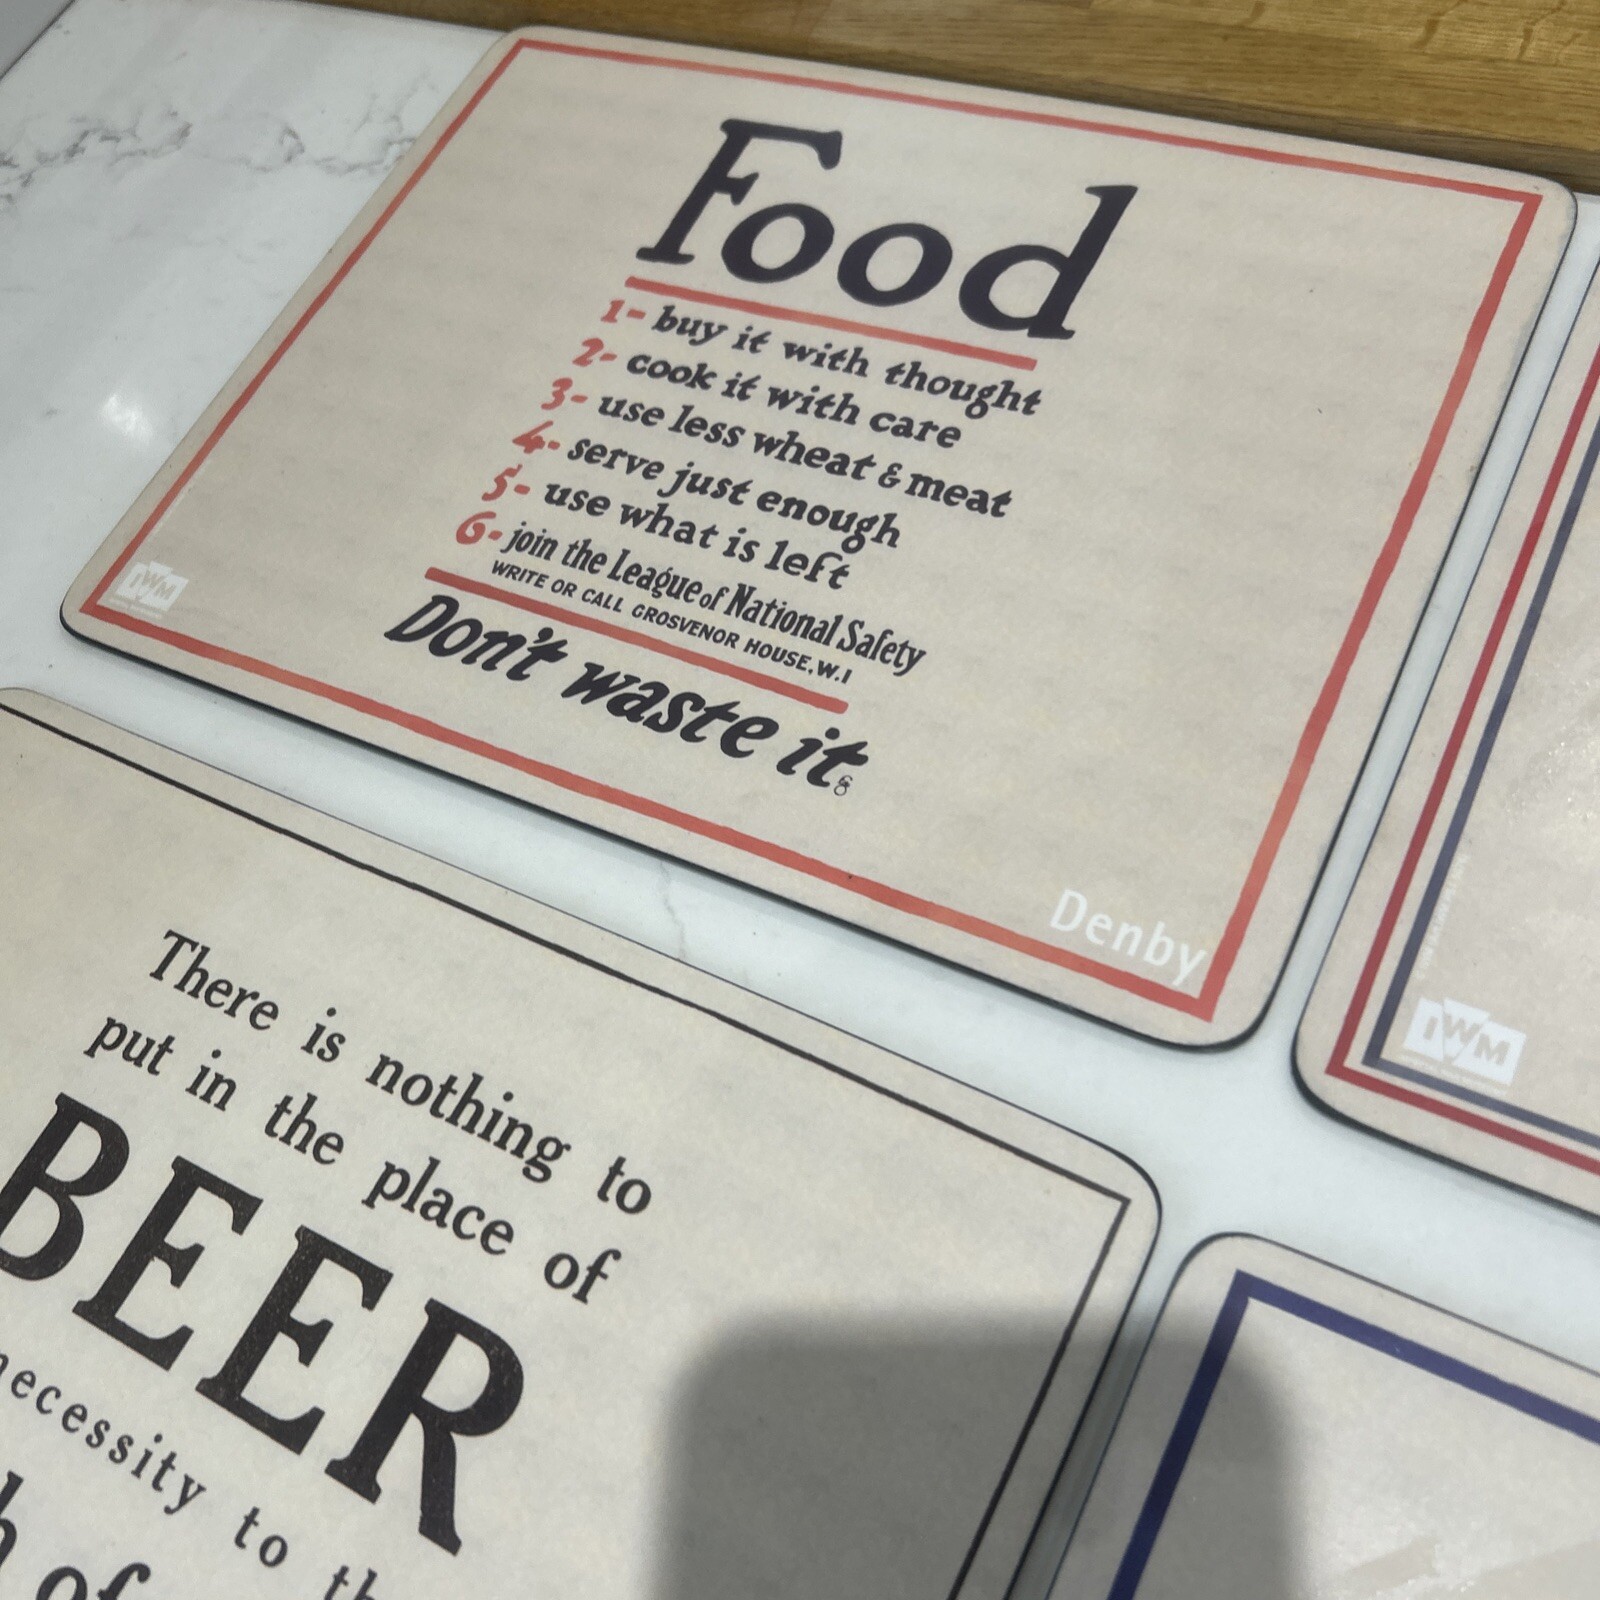 Food
1- buy it with thought
2- cook it with care
3- use less wheat & meat
4- serve just enough
5- use what is left
6- join the League of National Safety
WRITE OR CALL GROSVENOR HOUSE, W.I
Don't waste it
IWM
Denby
There is nothing to
put in the place of
BEER
necessity to
of
IWM